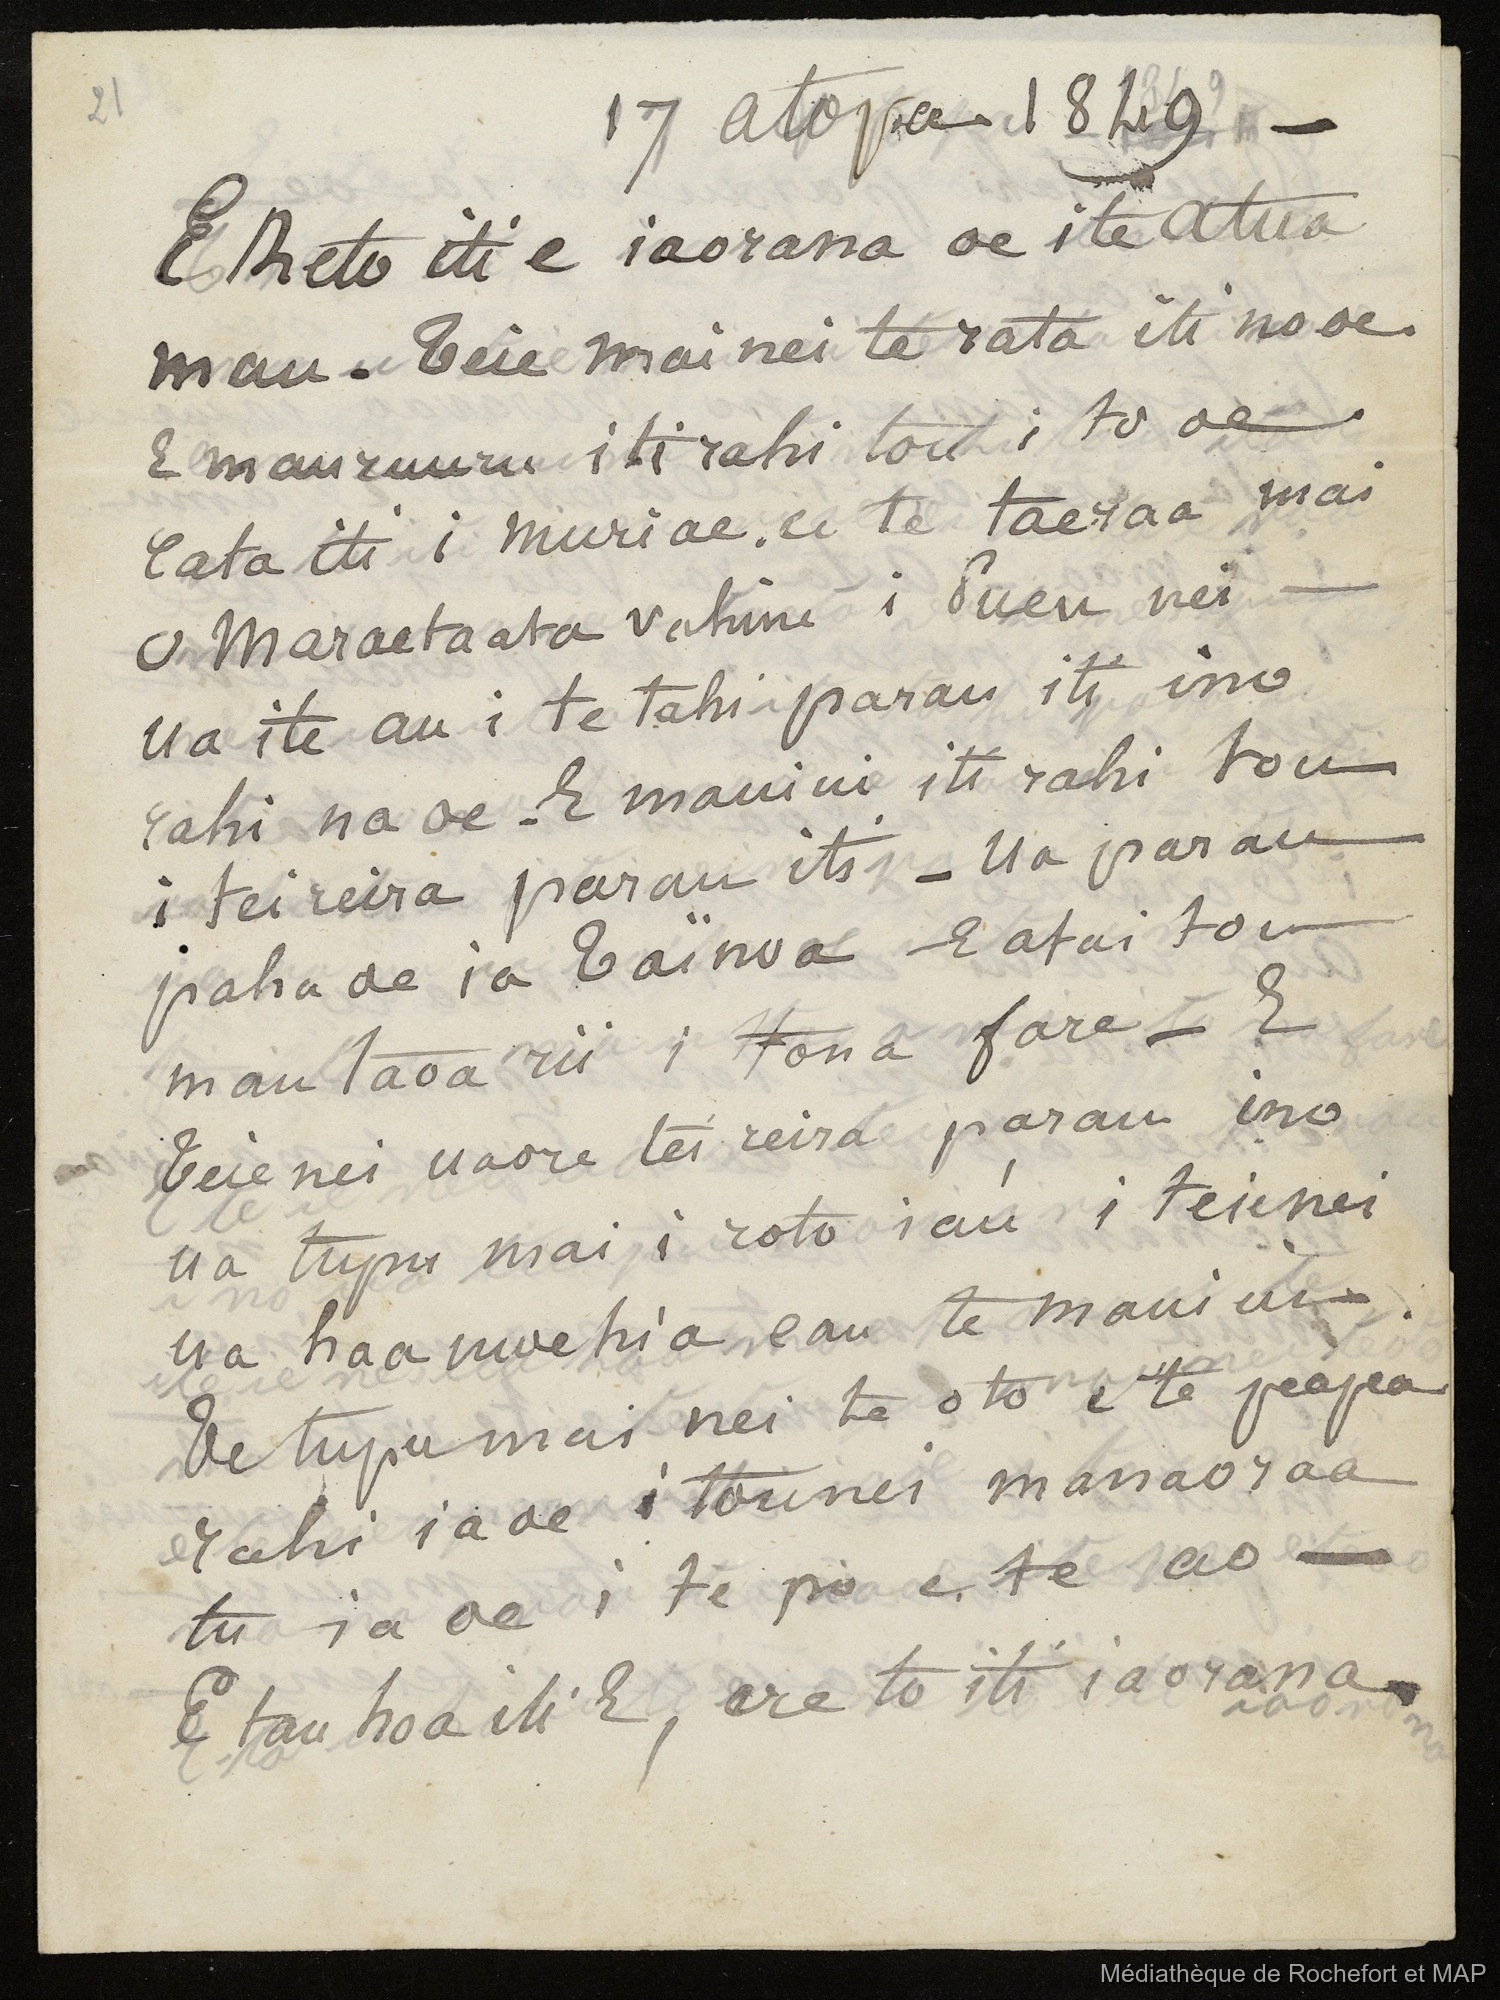 21
17 atopa 1849 –
E Reto iti e iaorana oe i te atua
mau. Teie mai nei te rata iti no oe.
E mauruuru iti rahi tou i to oe
rata iti i muriae. e te taeraa mai
o Maraetaata vahine i Pueu nei –
ua ite au i te tahi parau iti ino
rahi na oe - E mauiui iti rahi tou
i teireira parau iti - Ua parau
paha oe ia Taïnoa - E atai tou
mau taoa rii i tona fare - E
teie nei uaore tei reira parau ino
ua tupu mai i roto iau i teienei
ua haa moehia e au te mauiui.
Te tupu mai nei te oto e te peapea
rahi ia oe i tou nei manaoraa
tu ia oe i te po e te ao –
E tau hoa iti E, ere to iti iaorana
Médiathèque de Rochefort et MAP